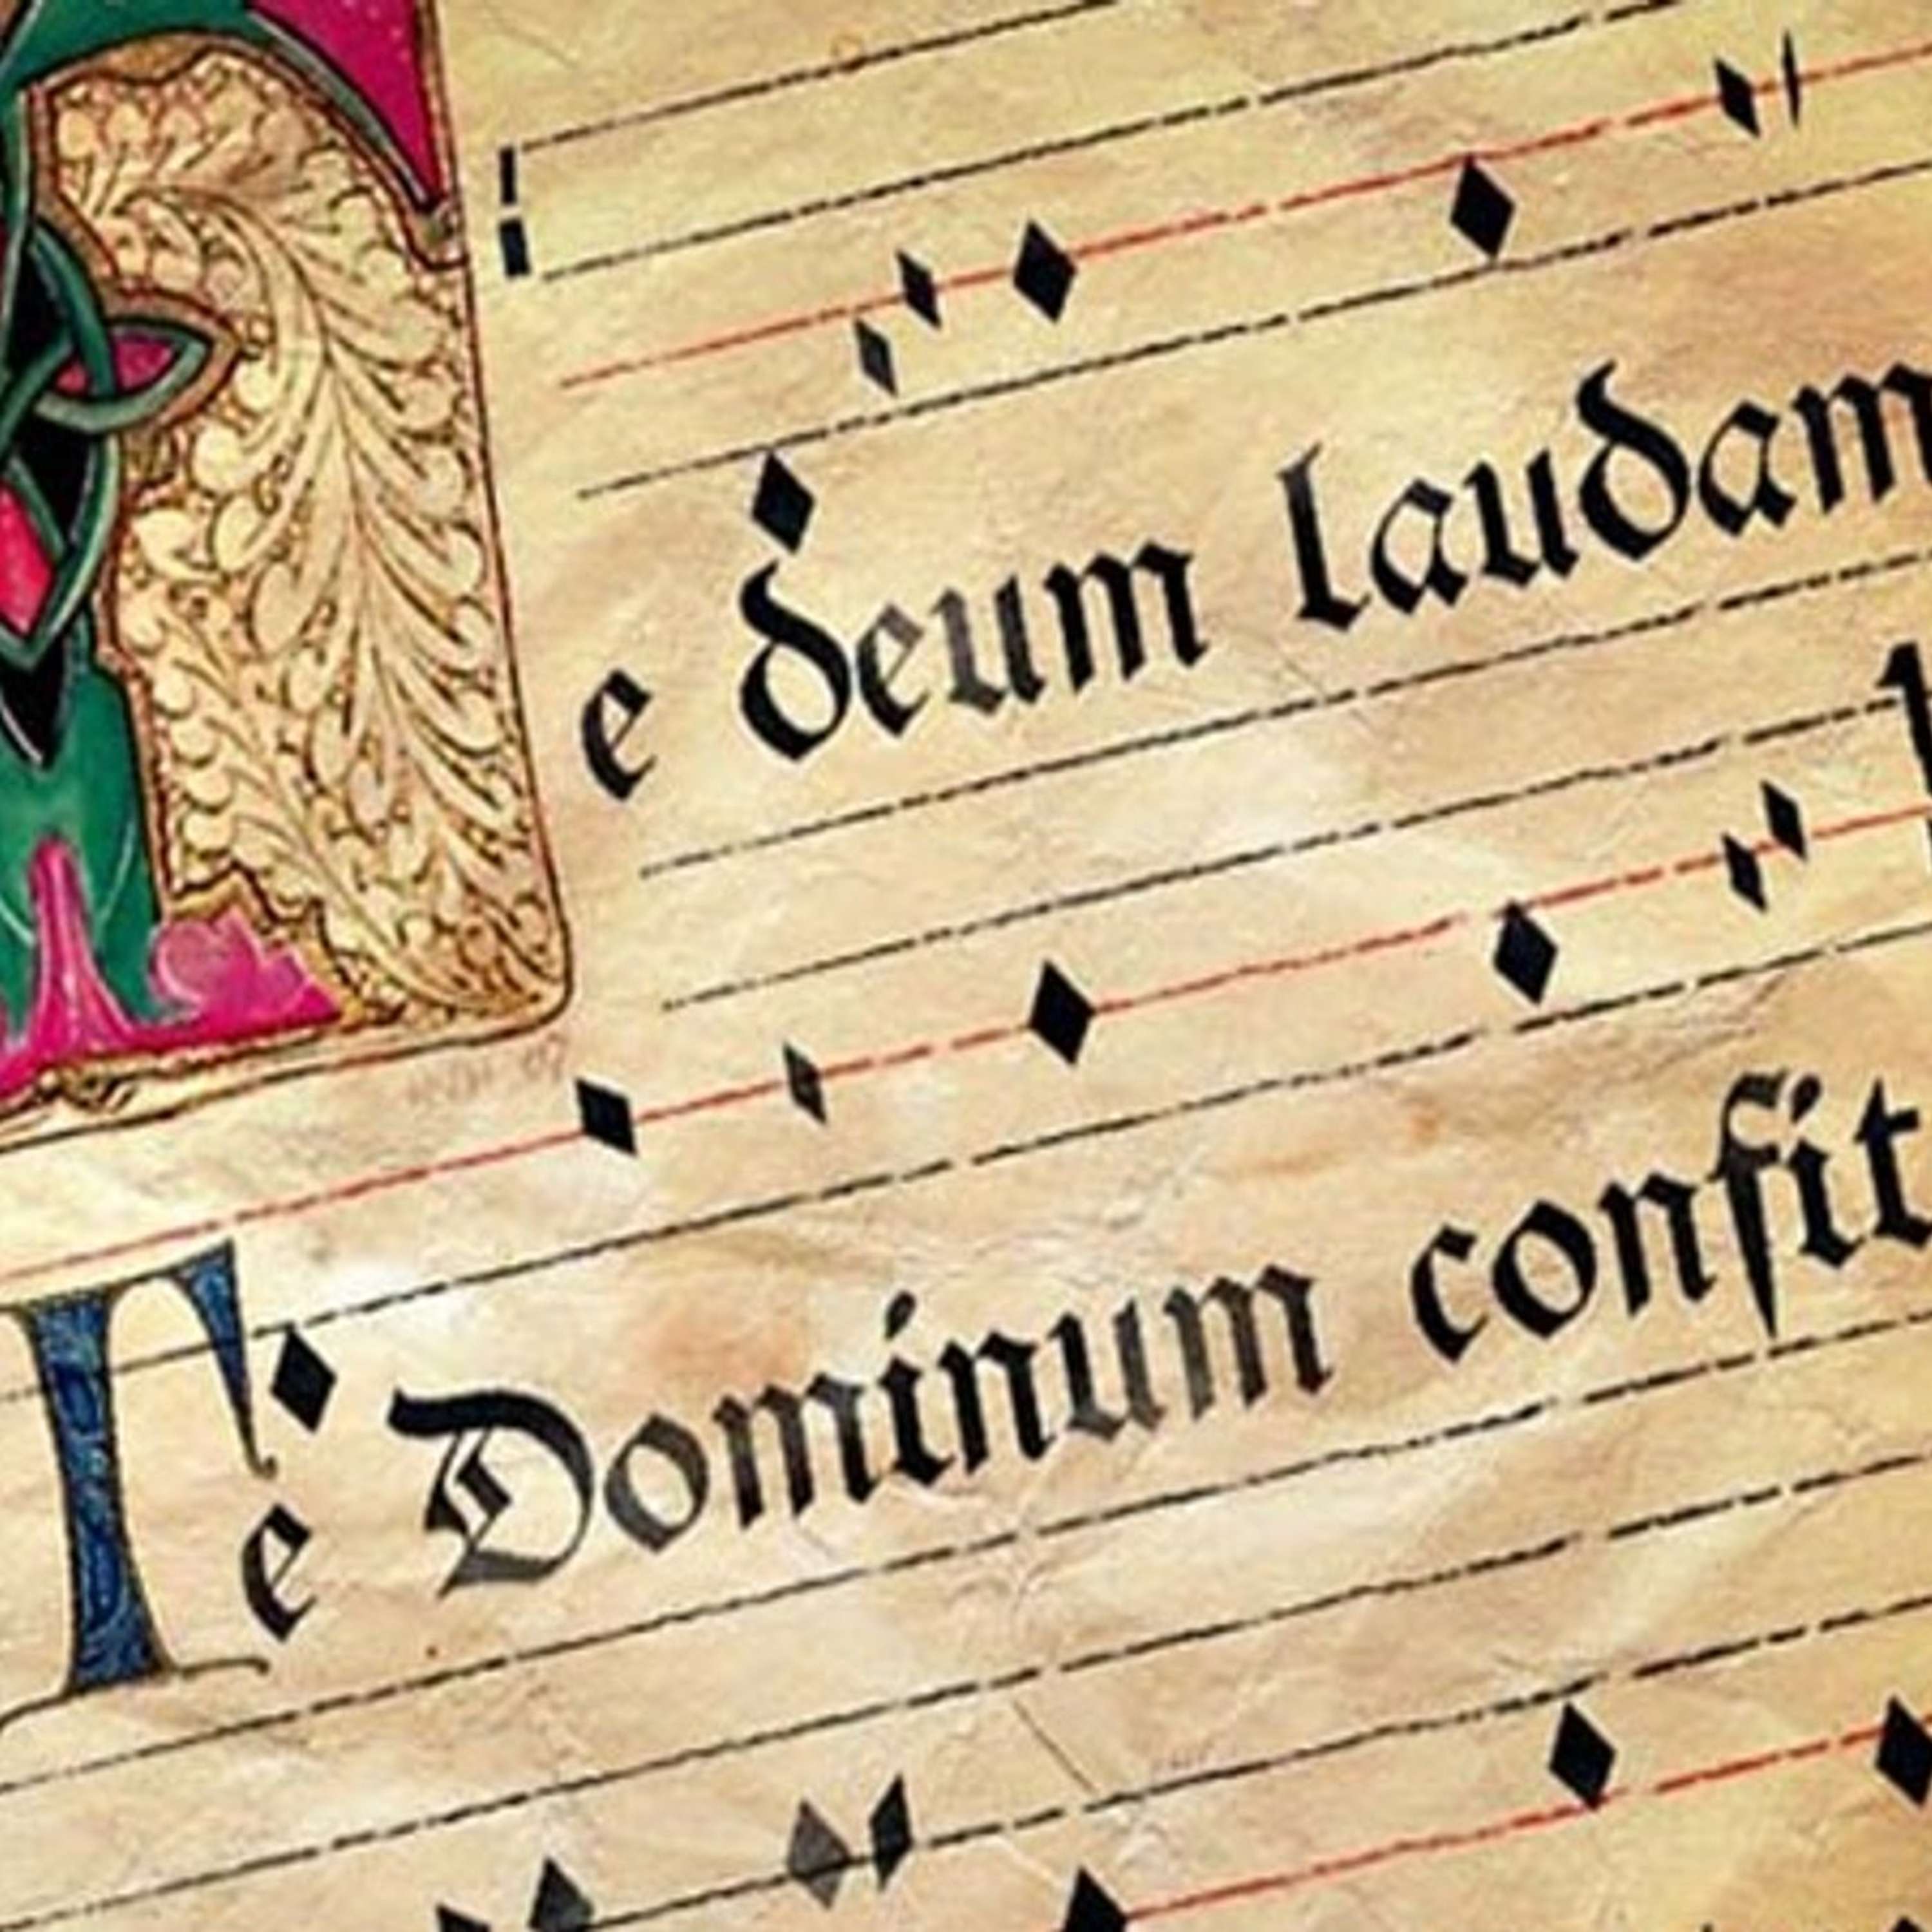 e deum laudam
Te Dominum confit